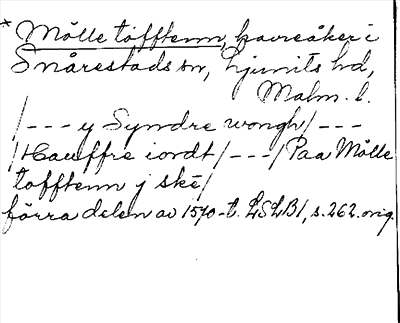 * Mölle tofftenn, havreåker i
Snårestads sn, Ljunits hd,
Malm. l.
/--- y Syndre wongh/---
/Hauffre iordt/---/Paa Mölle
tofftenn j ske/
förra delen av 1570-t. LSLB1, s. 262. orig.